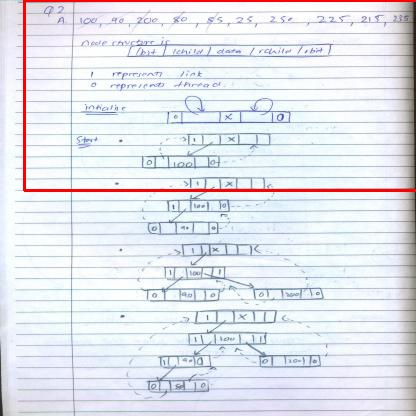 Q2
A. 100, 90, 200, 80, 85, 25, 250, 225, 215, 235
Node structure is
| lbit | lchild | data | rchild | rbit |
1 represents link
0 represents thread
initialize
0 | | X | | 0
Start
1 | | X | |
0 | 100 | 0
1 | | X | |
1 | 100 | 0
0 | 90 | 0
1 | X | |
1 | 100 | 1
0 | 90 | 0 0 | 200 | 0
1 | X | |
1 | 100 | 1
1 | 90 | 0 0 | 200 | 0
0 | 80 | 0